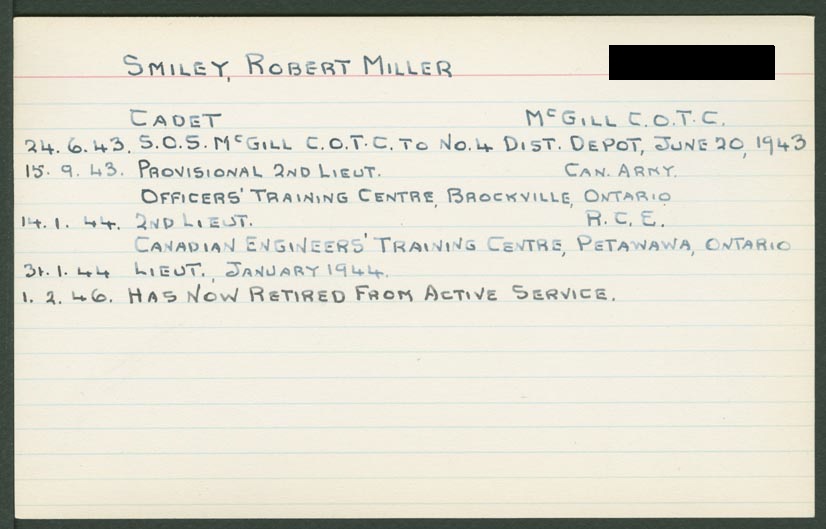 SMILEY, ROBERT MILLER
CADET McGILL C.O.T.C.
24.6.43. S.O.S. McGILL C.O.T.C. TO NO.4 DIST. DEPOT, JUNE 20, 1943
15.9.43. PROVISIONAL 2ND LIEUT. CAN. ARMY.
OFFICERS' TRAINING CENTRE, BROCKVILLE, ONTARIO
14.1.44. 2ND LIEUT. R.C.E.
CANADIAN ENGINEERS' TRAINING CENTRE, PETAWAWA, ONTARIO
31.1.44 LIEUT., JANUARY 1944.
1.2.46. HAS NOW RETIRED FROM ACTIVE SERVICE.